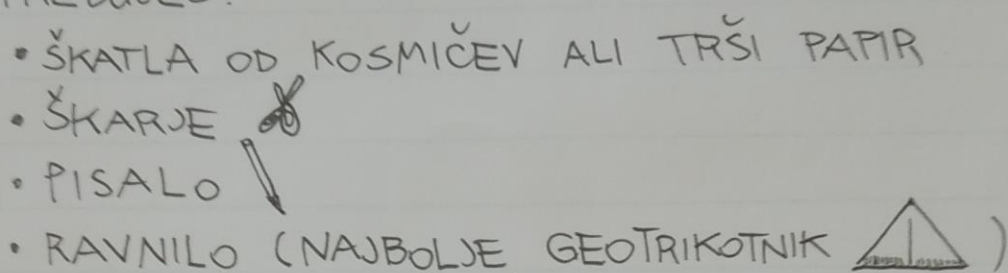 • ŠKATLA OD KOSMIČEV ALI TRŠI PAPIR
• ŠKARJE
• PISALO
• RAVNILO (NAJBOLJE GEOTRIKOTNIK )